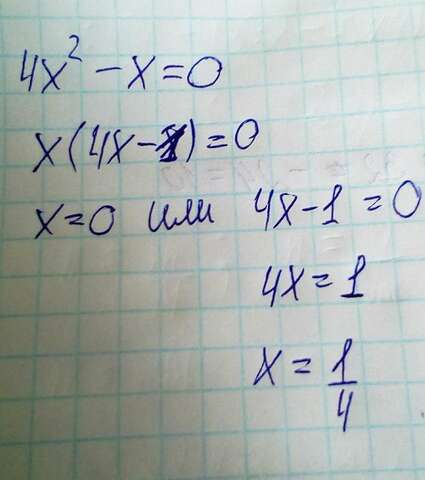 4x² - x = 0
x(4x-1) = 0
x=0 или 4x-1 = 0
4x = 1
x = 1/4